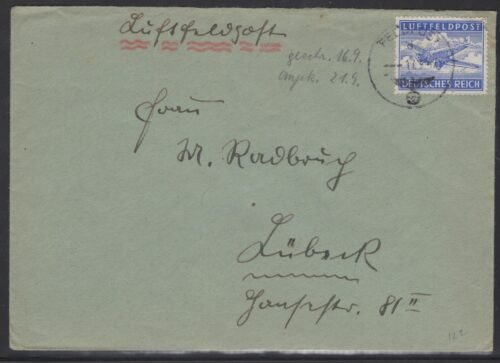 Luftfeldpost
geschr. 16.9.
Ank. 21.9.
FELDPOST
LUFTFELDPOST
DEUTSCHES REICH
Frau
M. Radbruch
Lübeck
Hansestr. 81 II
122